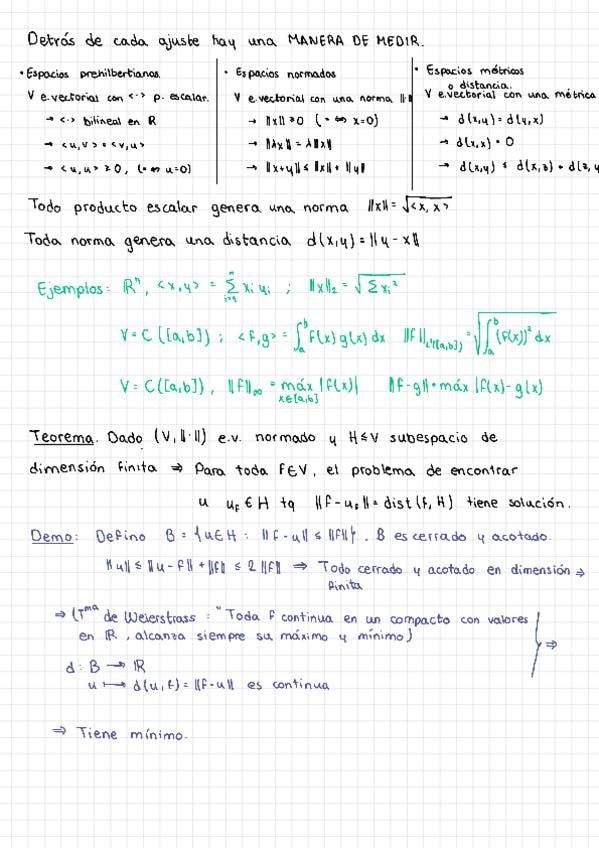 Detrás de cada ajuste hay una MANERA DE MEDIR.
• Espacios prehilbertianos
V e.vectorial con <·> p. escalar.
→ <·> bilineal en R
→ <u,v> = <v,u>
→ <u,u> ≥ 0, (= ⇔ u=0)
• Espacios normados
V e.vectorial con una norma ‖·‖
→ ‖x‖ ≥ 0 (= ⇔ x=0)
→ ‖λx‖ = λ‖x‖
→ ‖x+y‖ ≤ ‖x‖ + ‖y‖
• Espacios métricos
o distancia.
V e.vectorial con una métrica
→ d(x,y) = d(y,x)
→ d(x,x) = 0
→ d(x,y) ≤ d(x,z) + d(z,y
Todo producto escalar genera una norma ‖x‖ = √<x, x>
Toda norma genera una distancia d(x,y) = ‖y - x‖
Ejemplos: ℝⁿ, <x,y> = Σᵢ₌₁ⁿ xᵢ yᵢ ; ‖x‖₂ = √Σxᵢ²
V = C([a,b]) ; <f,g> = ∫ₐᵇ f(x)g(x)dx ‖f‖_L²([a,b]) = √∫ₐᵇ (f(x))² dx
V = C([a,b]), ‖f‖∞ = máx |f(x)| ‖f-g‖ = máx |f(x) - g(x)
x∈[a,b]
Teorema. Dado (V,‖·‖) e.v. normado y H≤V subespacio de
dimensión finita ⇒ Para toda f∈V, el problema de encontrar
u u_f ∈ H tq ‖f - u_f‖ = dist(f, H) tiene solución.
Demo: Defino B = {u∈H : ‖f - u‖ ≤ ‖f‖}. B es cerrado y acotado.
‖u‖ ≤ ‖u - f‖ + ‖f‖ ≤ 2‖f‖ ⇒ Todo cerrado y acotado en dimensión ⇒
finita
⇒ (Tᵐᵃ de Weierstrass : "Toda f continua en un compacto con valores
en ℝ, alcanza siempre su máximo y mínimo) ⇒
d : B → ℝ
u ↦ d(u,f) = ‖f-u‖ es continua
⇒ Tiene mínimo.